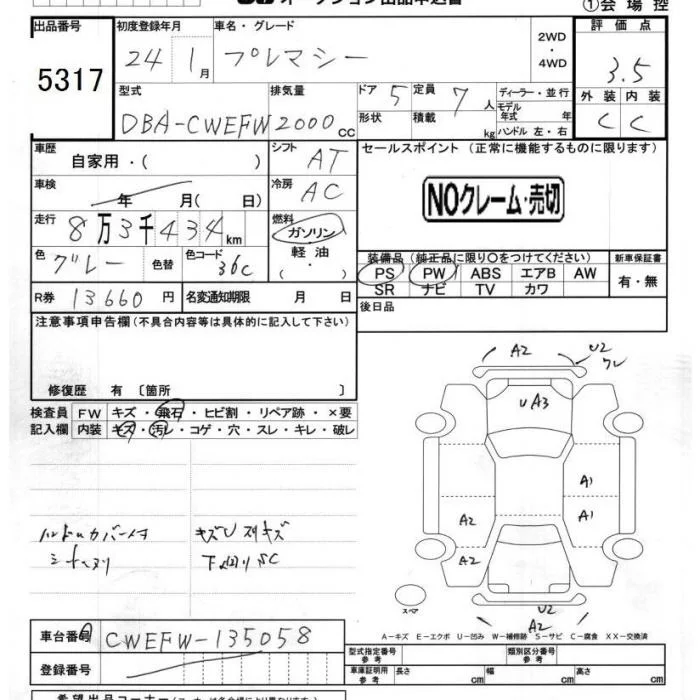 オークション出品申込書
①会場控
出品番号 初度登録年月 車名・グレード 2WD・4WD 評価点
5317 24 1月 プレマシー 3.5
型式 排気量 ドア 5 定員 7人 ディーラー・並行 外装 内装
DBA-CWEFW 2000cc 形状 積載 kg モデル年式 年 C C
ハンドル 左・右
車歴 自家用・( ) シフト AT セールスポイント (正常に機能するものに限ります)
車検 年 月( 日) 冷房 AC
NOクレーム・売切
走行 8万3千434km 燃料 ガソリン・軽油・( )
色 グレー 色替 色コード 36C
装備品 (純正品に限り○をつけてください) 新車保証書
PS PW ABS エアB AW 有・無
SR ナビ TV カワ
R券 13660円 名変通知期限 月 日 後日品
注意事項申告欄 (不具合内容等は具体的に記入して下さい)
修復歴 有 〔箇所 〕
検査員 FW キズ・飛石・ヒビ割・リペア跡・×要
記入欄 内装 キズ・汚レ・コゲ・穴・スレ・キレ・破レ
A2 U2
ワレ
UA3
A1
A2 A1
A2
スペア
U2
A2
キズU スリキズ
SC
A-キズ E-エクボ U-凹み W-補修跡 S-サビ C-腐食 XX-交換済
車台番号 CWEFW-135058
型式指定番号 参考 類別区分番号 参考
登録番号
車庫証明用 参考 長さ cm 幅 cm 高さ cm
希望出品コーナー